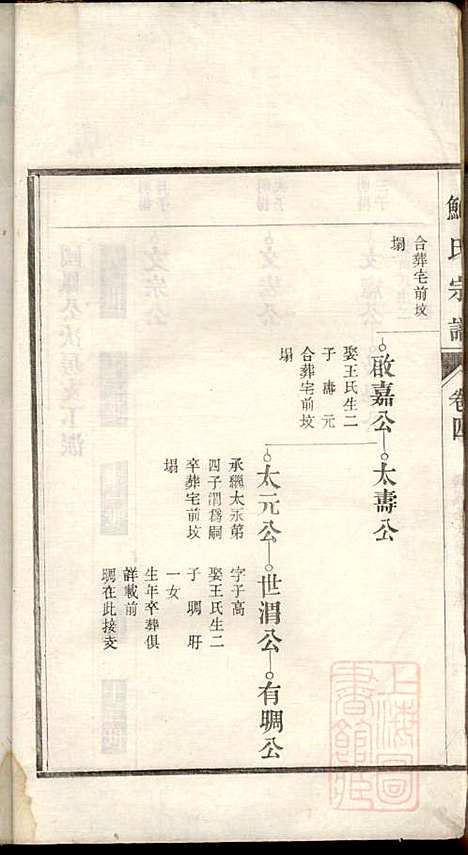 氏宗譜
卷四
合葬宅前坟
塌
啟嘉公
太壽公
娶王氏生二
子 壽 元
合葬宅前坟
塌
太元公
世渭公
有聃公
承繼太永第
四子渭爲嗣
卒葬宅前坟
塌
字子高
娶王氏生二
子 聃 盱
一女
生年卒葬俱
詳載前
聃在此接支
上海圖書館藏